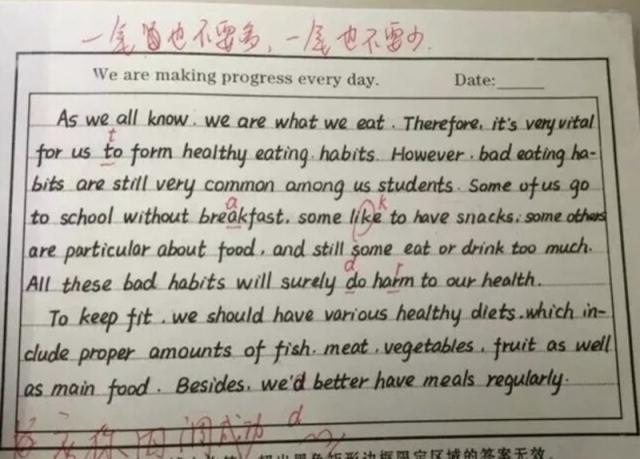 一笔也不要多，一笔也不要少.
We are making progress every day. Date:
As we all know, we are what we eat. Therefore, it's very vital
t
for us to form healthy eating habits. However, bad eating ha-
bits are still very common among us students. Some of us go
a k
to school without breakfast, some like to have snacks, some others
are particular about food, and still some eat or drink too much.
d r
All these bad habits will surely do harm to our health.
To keep fit, we should have various healthy diets, which in-
clude proper amounts of fish, meat, vegetables, fruit as well
as main food. Besides, we'd better have meals regularly.
成功 d
超出黑色矩形边框限定区域的答案无效